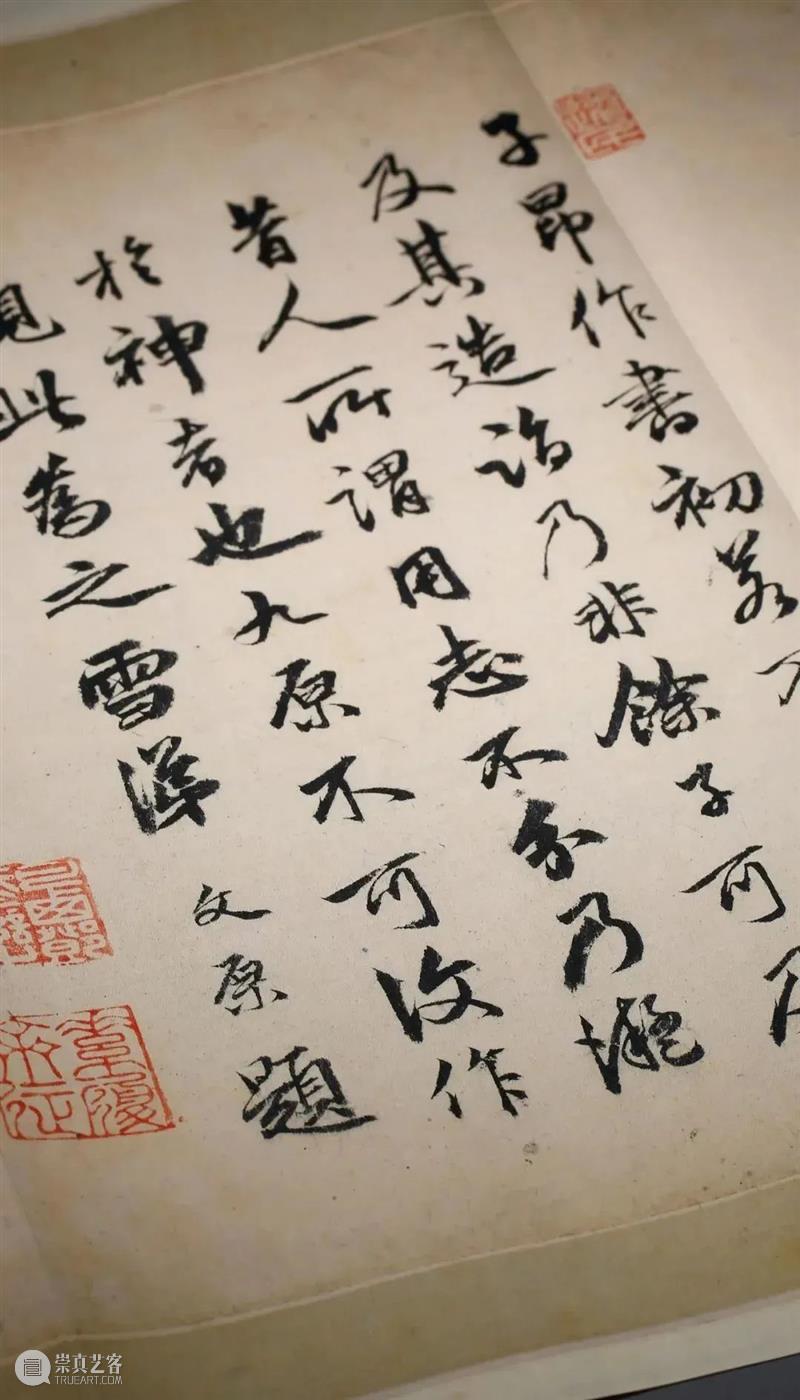 子昂作書初若不
及其造詣乃非餘子可及
昔人所謂用志不分乃凝
於神者也九原不可復作
見此為之雪涕
文原題
崇真艺客
TRUEART.COM